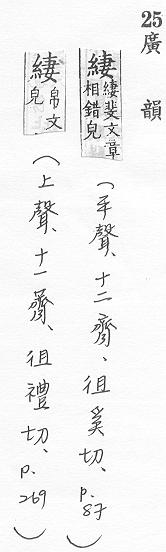 25
廣韻
緀 緀斐文章相錯皃
(平聲、十二齊、徂奚切、p.87)
緀 帛文皃
(上聲、十一薺、徂禮切、p.269)